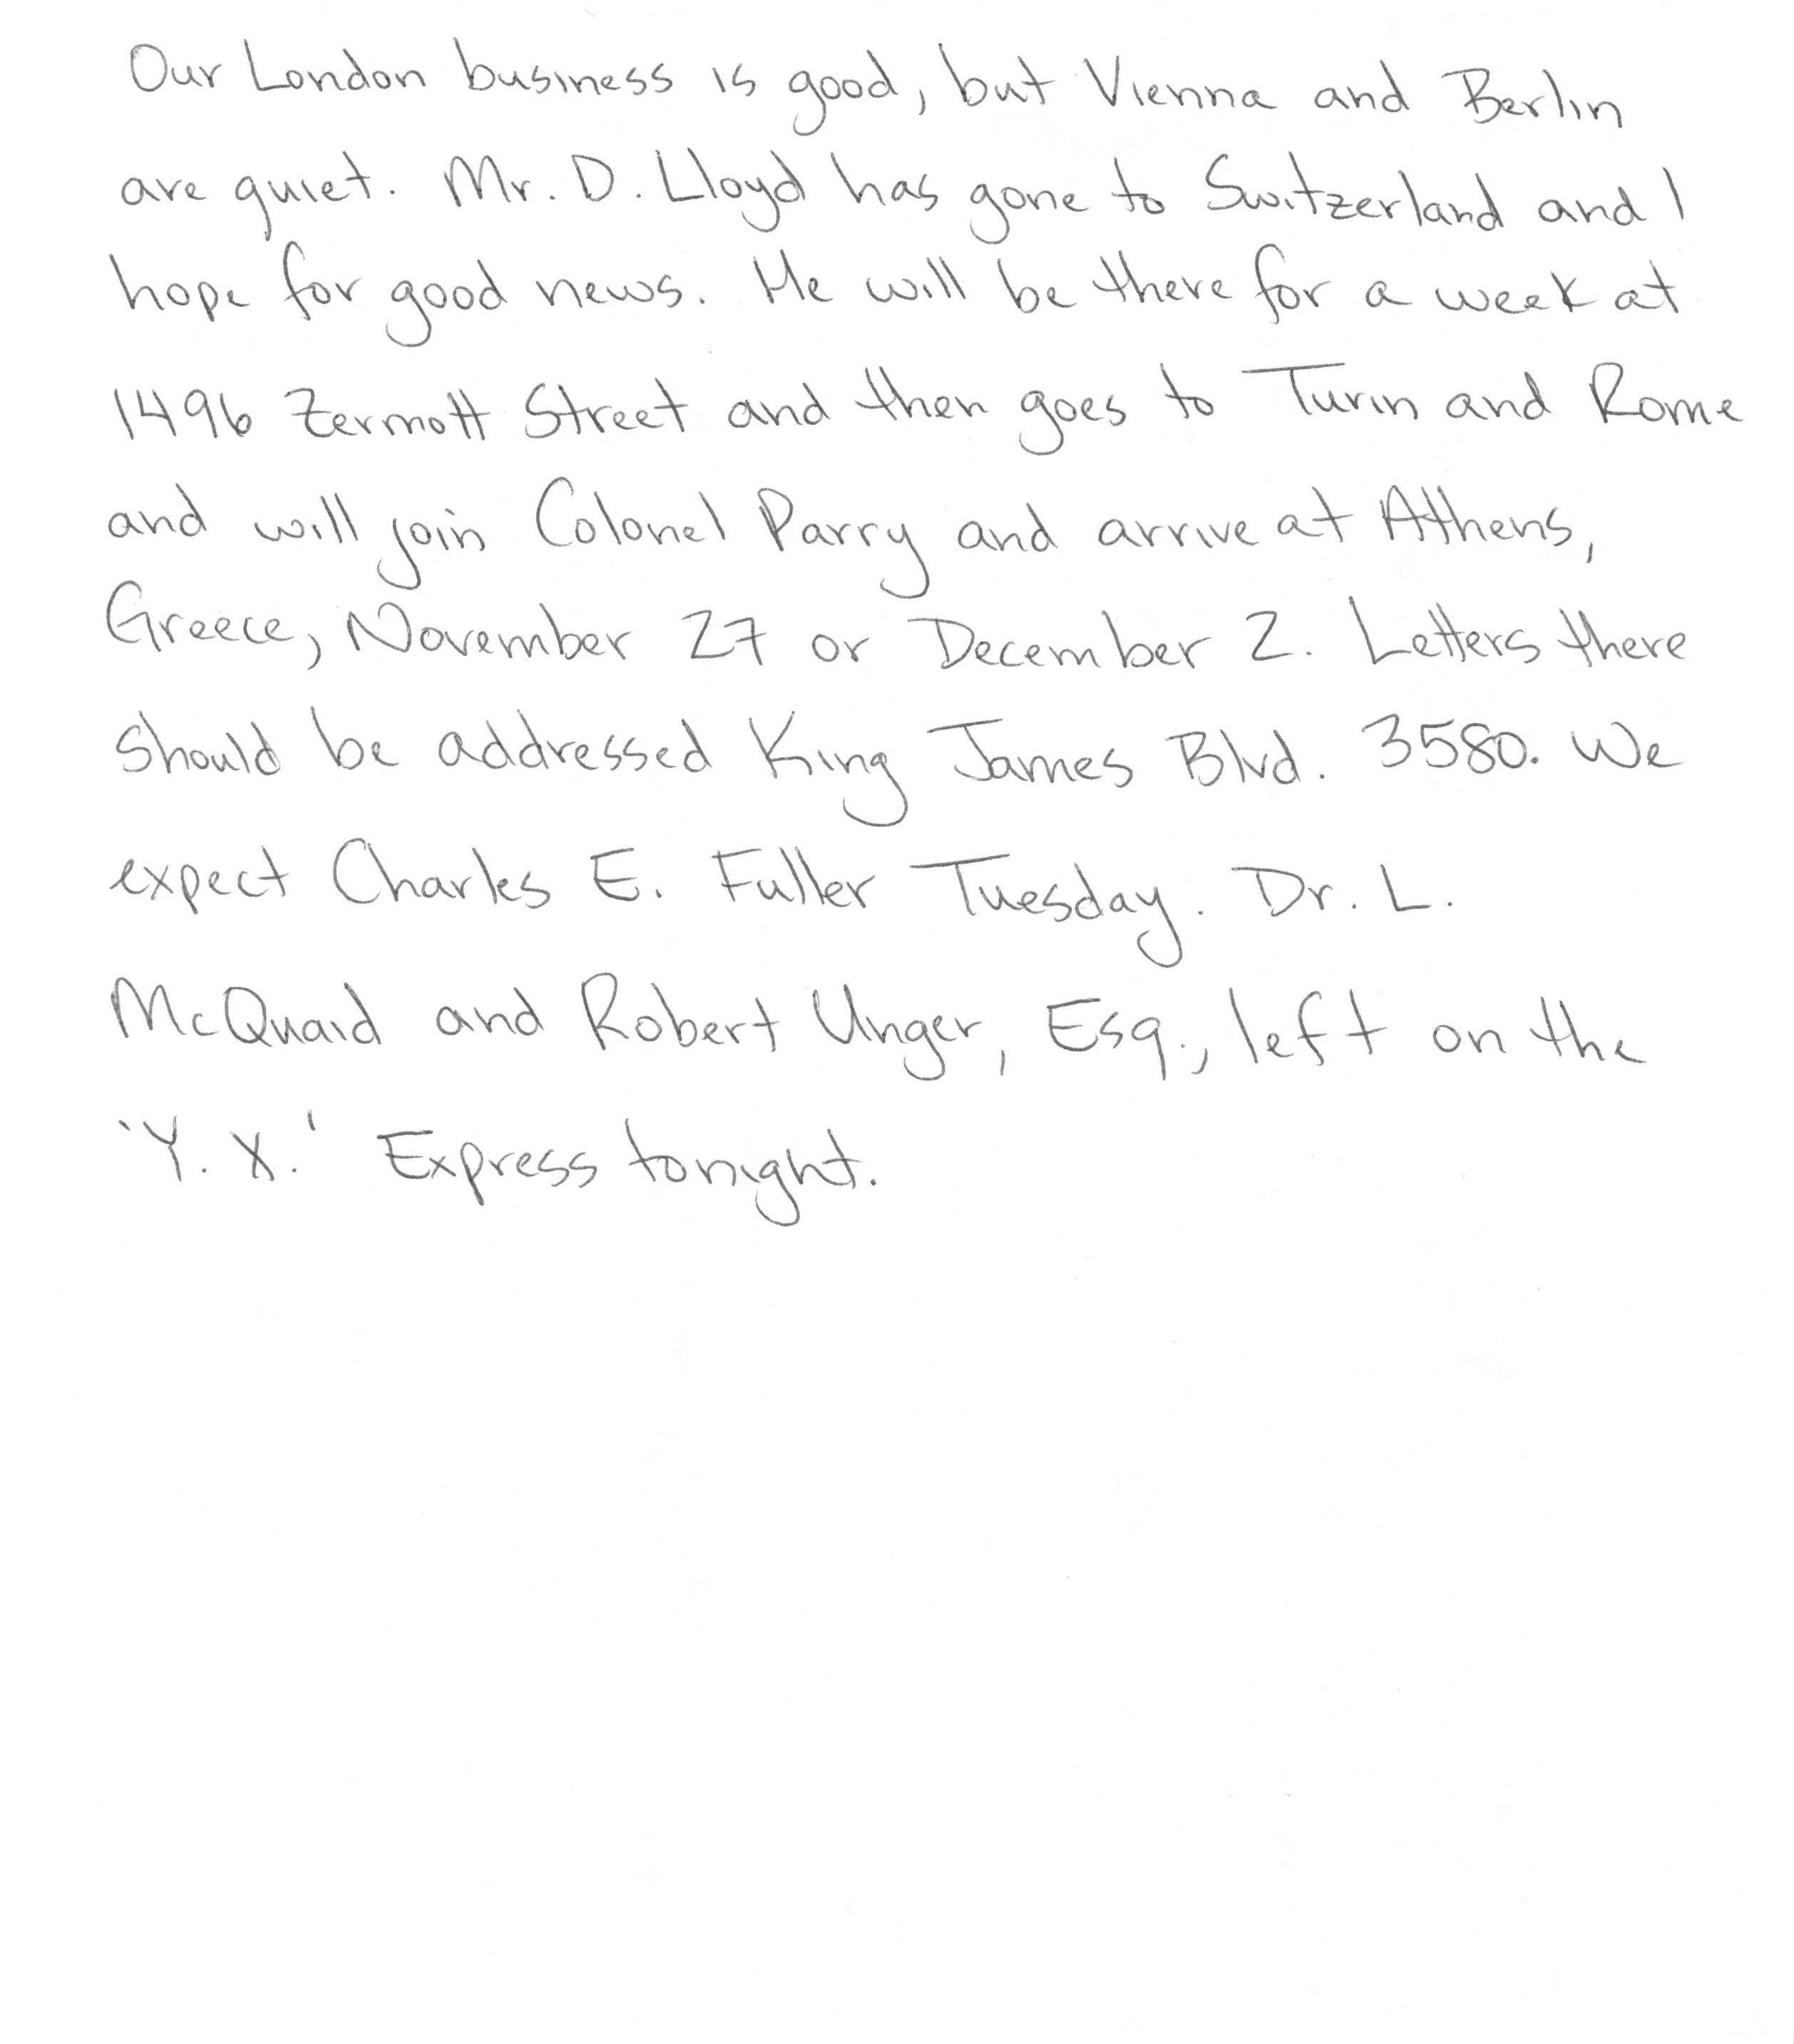 Our London business is good, but Vienna and Berlin
are quiet. Mr. D. Lloyd has gone to Switzerland and I
hope for good news. He will be there for a week at
1496 Zermott Street and then goes to Turin and Rome
and will join Colonel Parry and arrive at Athens,
Greece, November 27 or December 2. Letters there
should be addressed King James Blvd. 3580. We
expect Charles E. Fuller Tuesday. Dr. L.
McQuaid and Robert Unger, Esq., left on the
'Y. X.' Express tonight.